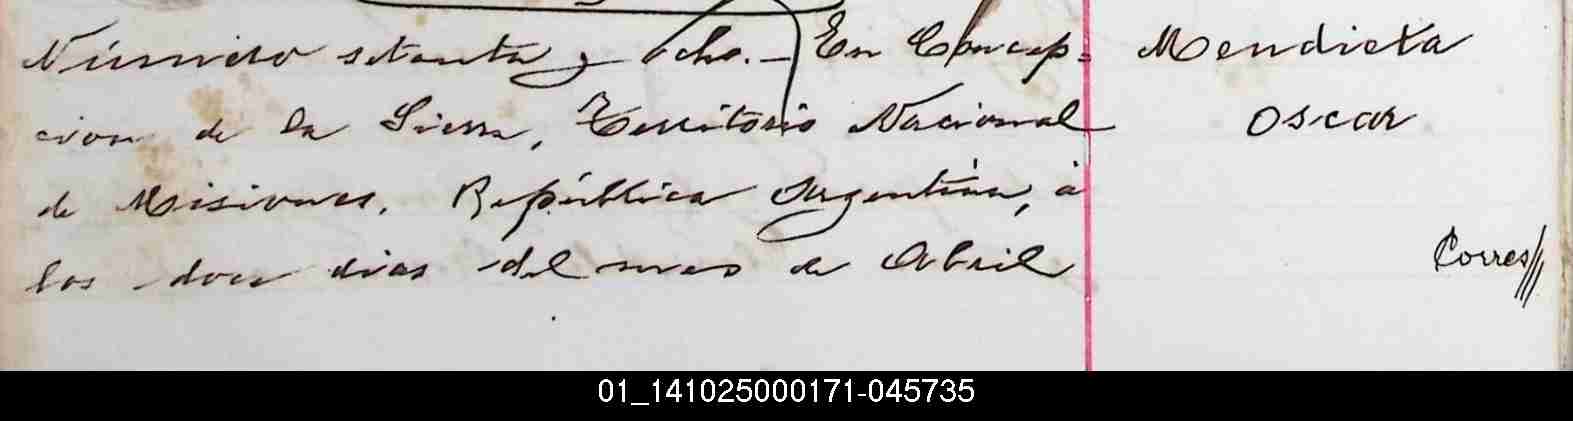 Número setenta y ocho.— En Concep=
cion de la Sierra, Territorio Nacional
de Misiones, República Argentina, á
los doce dias del mes de Abril
Mendieta
Oscar
Corres
01_141025000171-045735